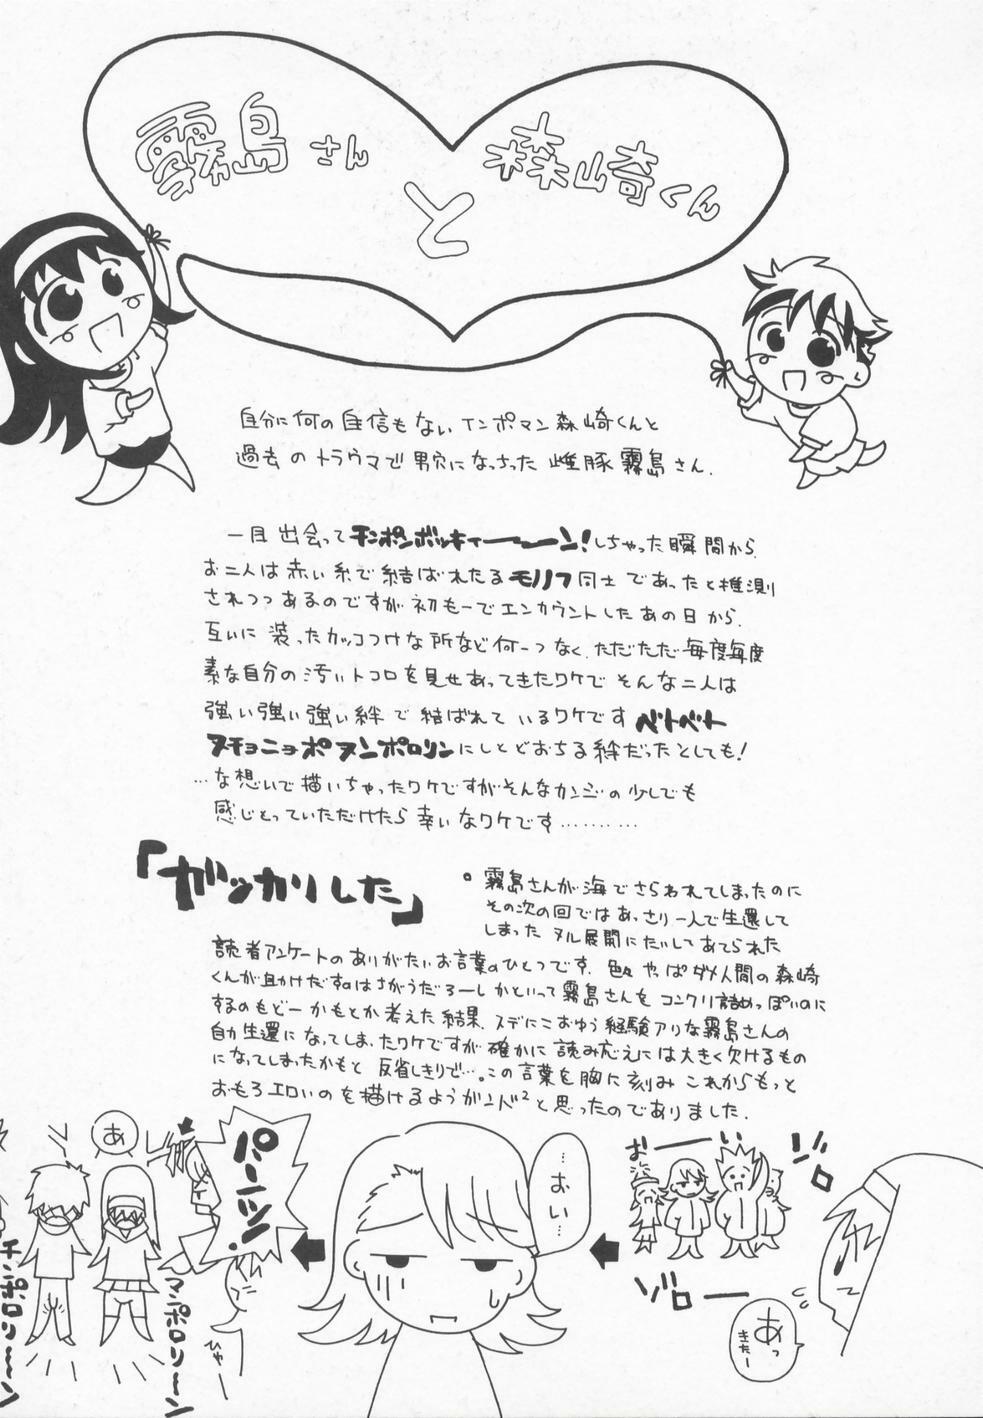 霧島さん
と
森崎くん
自分に何の自信もない インポマン森崎くんと
過去のトラウマで男穴になっちった 雌豚霧島さん.
一目出会って チンポンボッキィーーーン!しちゃった瞬間から.
お二人は赤い糸で結ばれたる モノノフ同士であったと推測
されつつあるのですが 初もーでエンカウントしたあの日から.
互いに装ったカッコつけな所など何一つなく.ただただ毎度毎度
素な自分の汚いトコロを見せあってきたワケで そんな二人は
強い強い強い絆で結ばれているワケです ベトベト
ヌチョニョポヌンポロリンにしとどおちる絆だったとしても!
…な想いで描いちゃったワケですが そんなカンジの少しでも
感じとっていただけたら幸いなワケです………
「ガッカリした」
○霧島さんが海でさらわれてしまったのに
その次の回ではあっさり一人で生還して
しまった ヌル展開にたいしてあてられた
読者アンケートのありがたいお言葉のひとつです. 色々やっぱダメ人間の森崎
くんが助けだすのはさがうだろーしかといって霧島さんをコンクリ詰めっぽいのに
するのもどーかもとか考えた結果.スデにこおゆう経験アリな霧島さんの
自力生還になってしまったワケですが 確かに読み応えには大きく欠けるもの
になってしまったかもと 反省しきりで…。この言葉を胸に刻み これからもっと
おもろエロいのを描けるようガンバ²と思ったのでありました.
おーーい
ゾロ
ゾローー
あっ
きたー
…おい…
パーーン!
ひゃー
あ
マンポロリーン
チンポロリーン